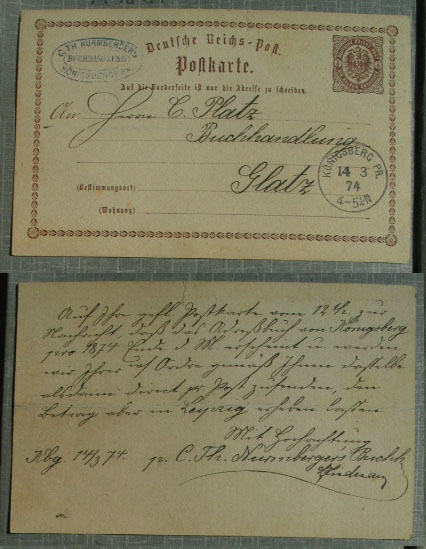 C. TH. NÜRMBERGER'S
BUCHHANDLUNG
KÖNIGSBERG PR.
Deutsche Reichs-Post.
Postkarte.
Auf die Vorderseite ist nur die Adresse zu schreiben.
An Herrn C. Platz
Buchhandlung
(Bestimmungsort) Glatz
(Wohnung)
KÖNIGSBERG PR.
14 3
74
4-5 N
Auf Ihre gefl. Postkarte vom 12 zur
Nachricht daß das Adreßbuch von Königsberg
pro 1874 Ende d M erscheint u werden
wir Ihrer Ordre gemäß Ihnen dasselbe
alsdann direct pr Post zusenden, den
Betrag aber in Leipzig erheben lassen
Mit Hochachtung
Kbg. 14/3 74. p. C. Th. Nürmberger's Buchh